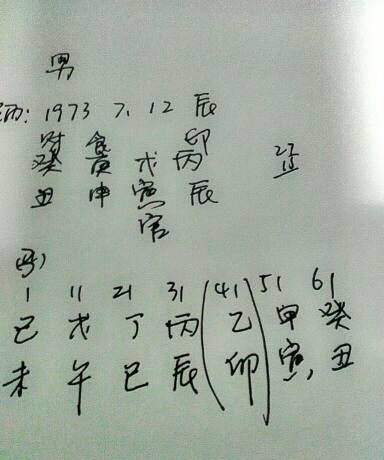 男
历: 1973 7, 12 辰
财 食 印
癸 庚 戊 丙
丑 申 寅 辰
官
1 11 21 31 (41) 51 61
己 戊 丁 丙 乙 甲 癸
未 午 巳 辰 卯 寅, 丑